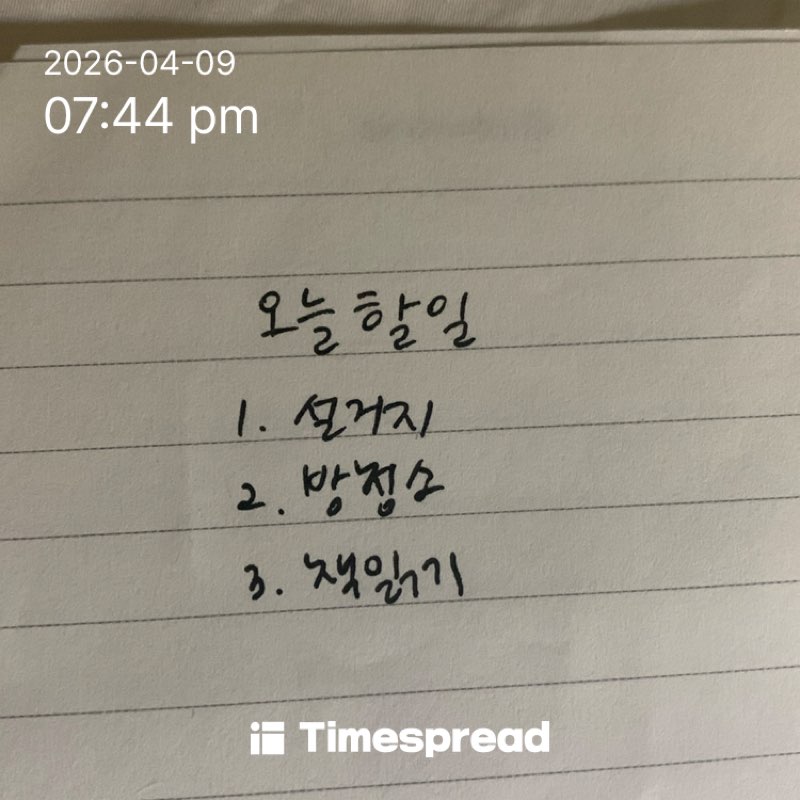 2026-04-09
07:44 pm
오늘 할일
1. 설거지
2. 방청소
3. 책읽기
Timespread